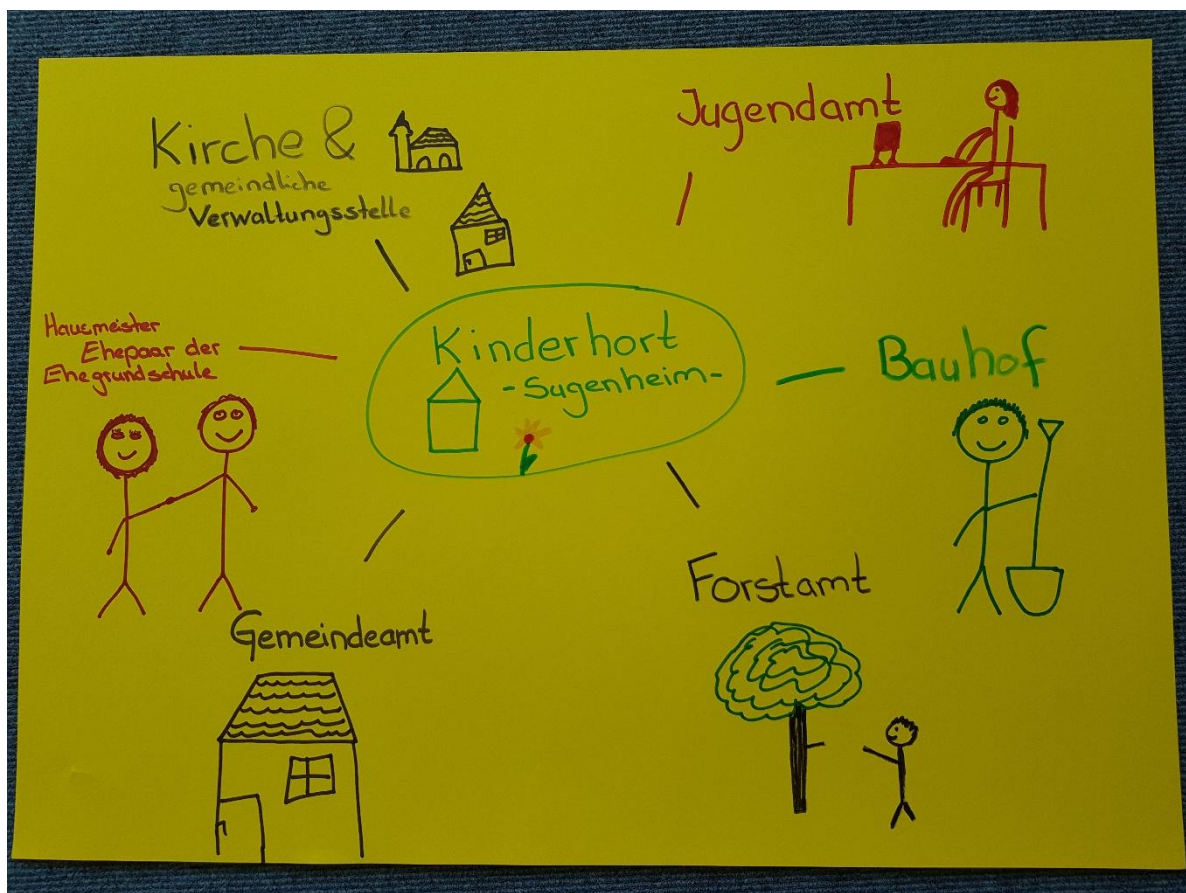 Kirche &
gemeindliche
Verwaltungsstelle
Jugendamt
Hausmeister
Ehepaar der
Ehegrundschule
Kinderhort
-Sugenheim-
Bauhof
Gemeindeamt
Forstamt